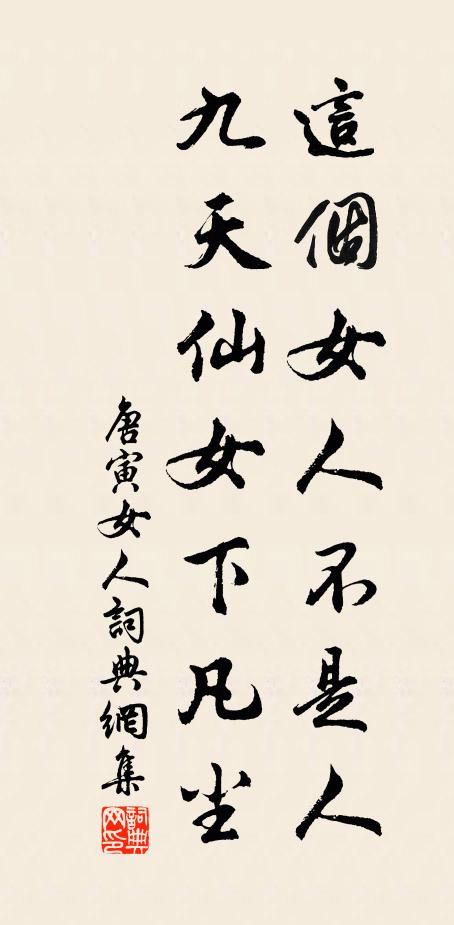 這個女人不是人
九天仙女下凡尘
唐寅女人詞典網集
詞典網印